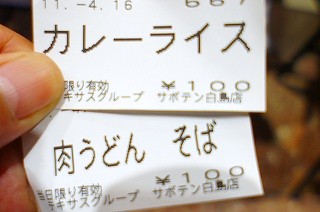 11.-4.16 667
カレーライス
当日限り有効 ¥100
テキサスグループ サボテン白鳥店
肉うどん そば
当日限り有効 ¥100
テキサスグループ サボテン白鳥店